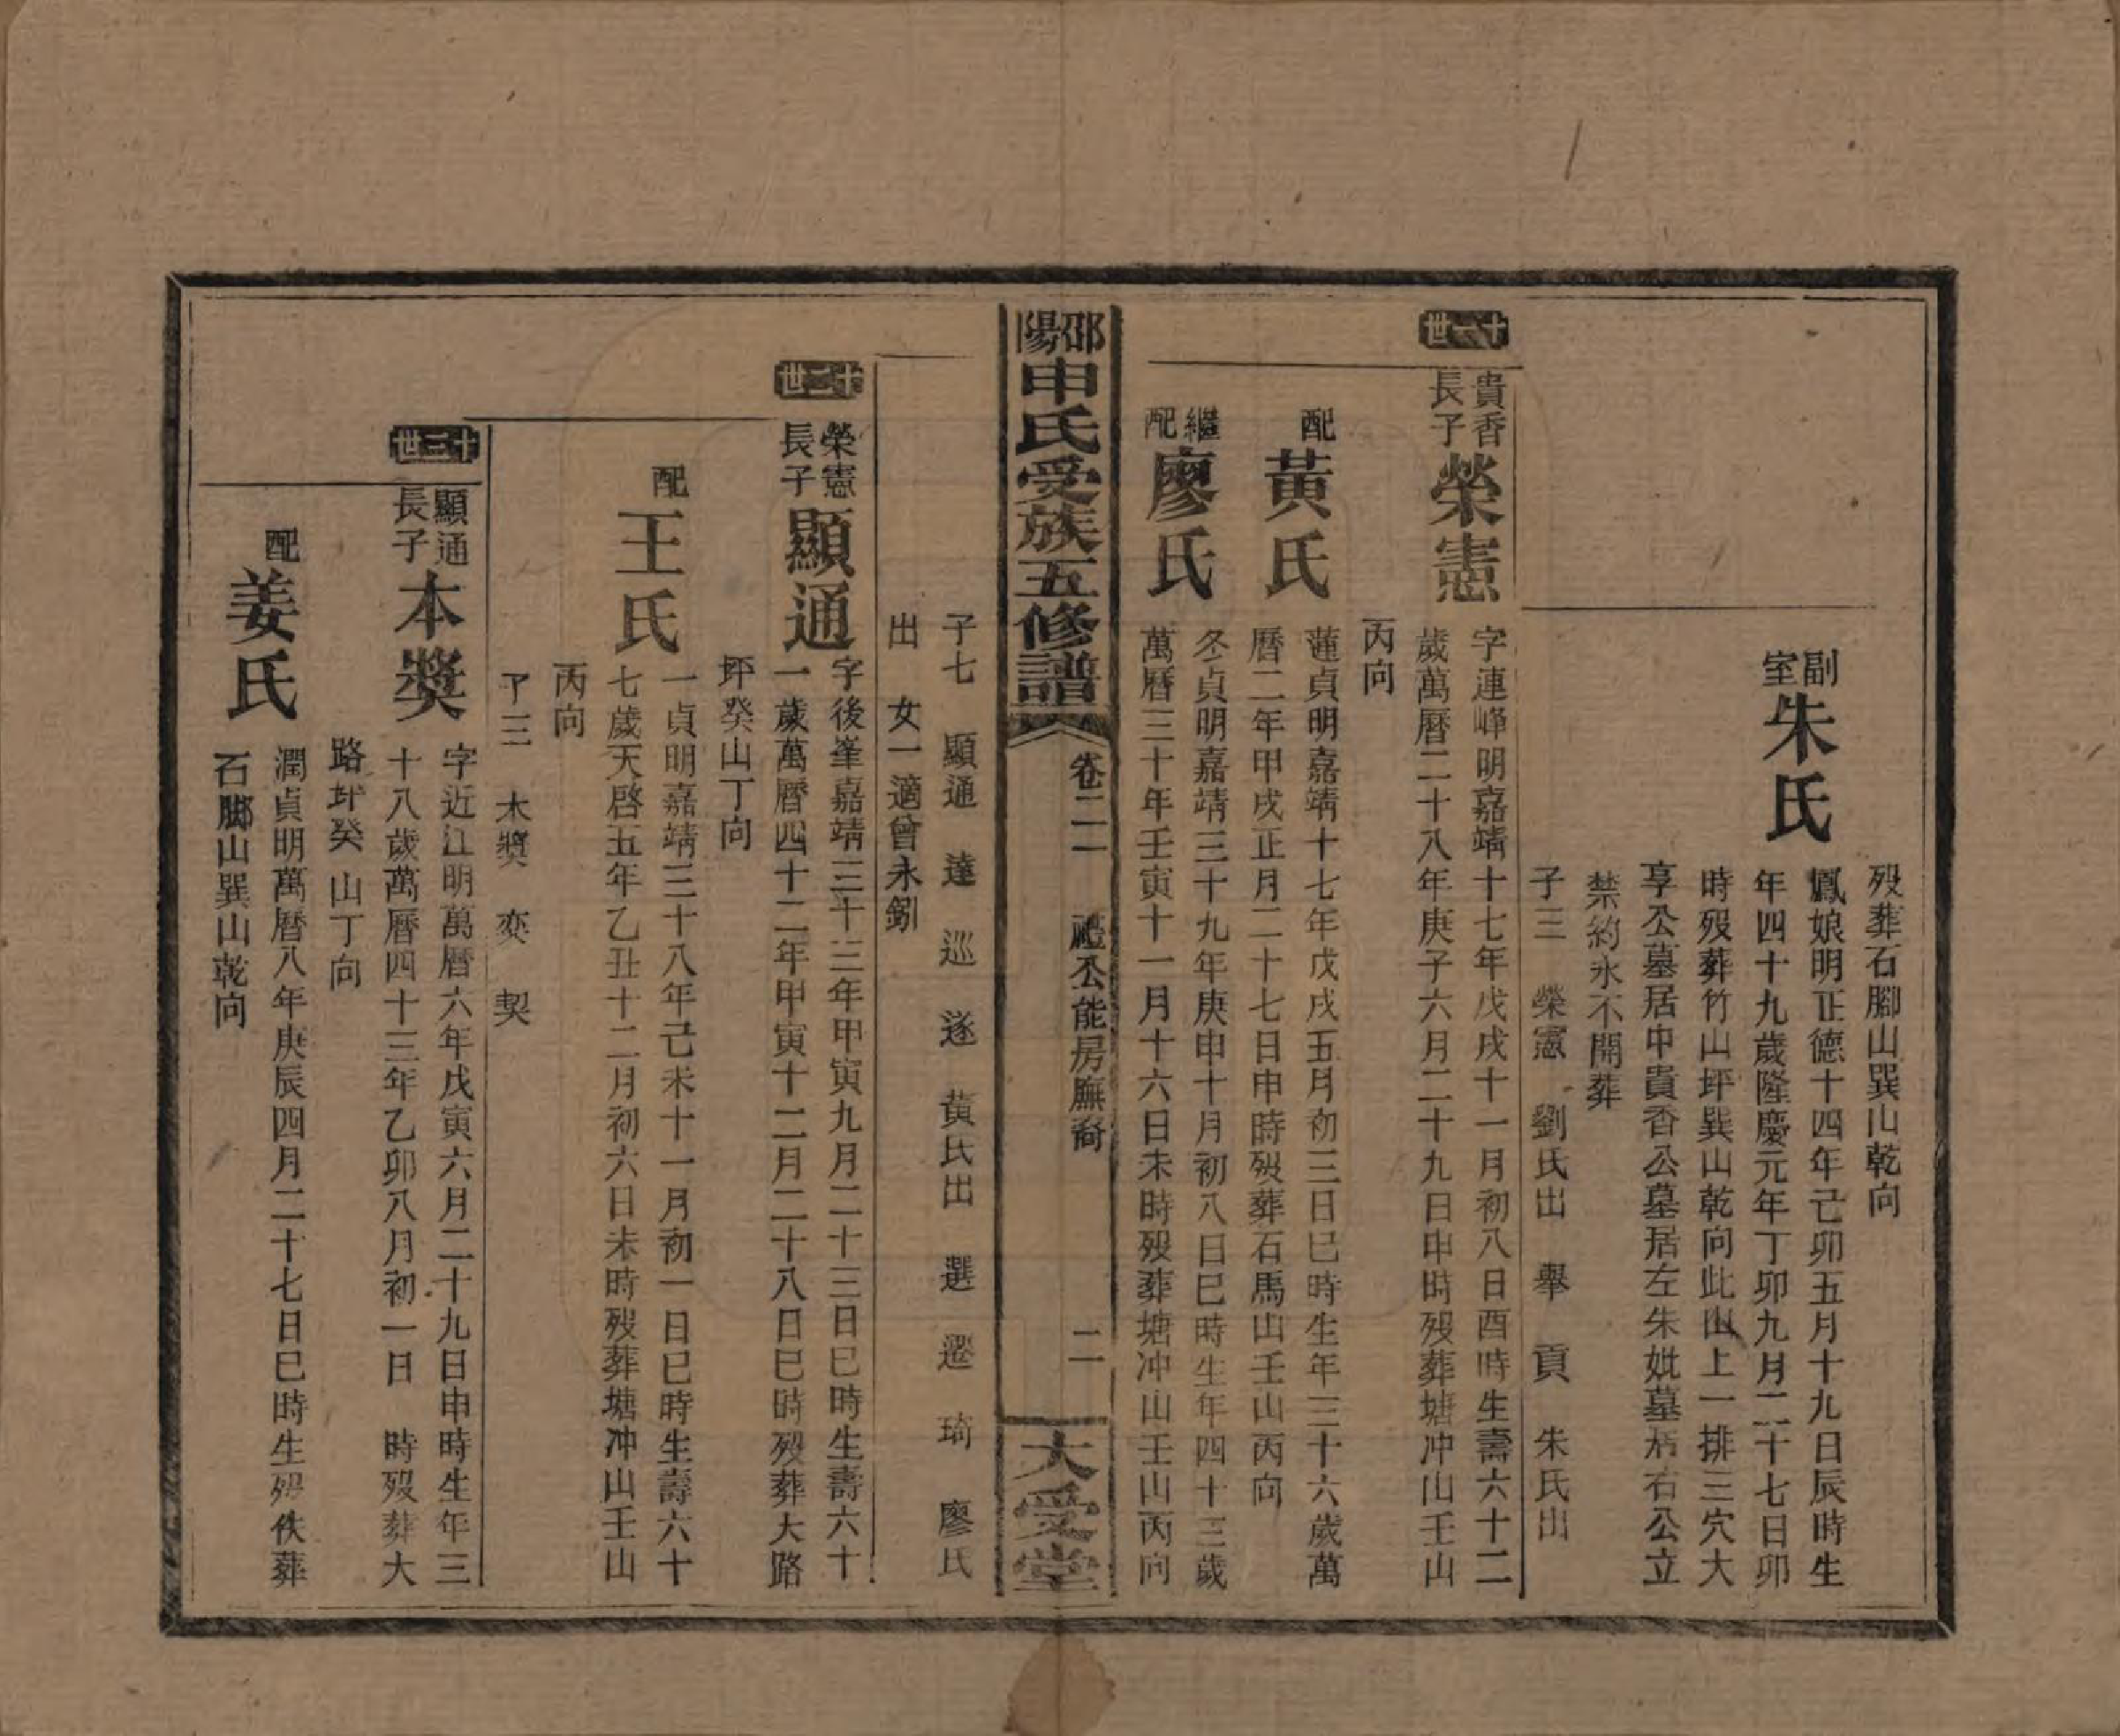 歿葬石腳山巽山乾向
副室朱氏
鳳娘明正德十四年己卯五月十九日辰時生
年四十九歲隆慶元年丁卯九月二十七日卯
時歿葬竹山坪巽山乾向此山上一排三穴大
享公墓居中貴香公墓居左朱妣墓居右公立
禁約永不開葬
子三　榮憲　劉氏出　舉　貢　朱氏出
十一世
貴香長子榮憲
字連峰明嘉靖十七年戊戌十一月初八日酉時生壽六十二
歲萬曆二十八年庚子六月二十九日申時歿葬塘冲山壬山
丙向
配黃氏
蓮貞明嘉靖十七年戊戌五月初三日巳時生年三十六歲萬
曆二年甲戌正月二十七日申時歿葬石馬山壬山丙向
繼配廖氏
冬貞明嘉靖三十九年庚申十月初八日巳時生年四十三歲
萬曆三十年壬寅十一月十六日未時歿葬塘冲山壬山丙向
邵陽申氏受族五修譜
卷二　禮公能房廡裔　二
大受堂
子七　顯通　達　巡　遂　黃氏出　選　遷　琦　廖氏
出　女一適曾永釼
十二世
榮憲長子顯通
字後峯嘉靖三十三年甲寅九月二十三日巳時生壽六十
一歲萬曆四十二年甲寅十二月二十八日巳時歿葬大路
坪癸山丁向
配王氏
一貞明嘉靖三十八年己未十一月初一日巳時生壽六十
七歲天啓五年乙丑十二月初六日未時歿葬塘冲山壬山
丙向
子三　本獎　奕　契
十三世
顯通長子本獎
字近江明萬曆六年戊寅六月二十九日申時生年三
十八歲萬曆四十三年乙卯八月初一日　時歿葬大
路坪癸山丁向
配姜氏
潤貞明萬曆八年庚辰四月二十七日巳時生歿佚葬
石腳山巽山乾向